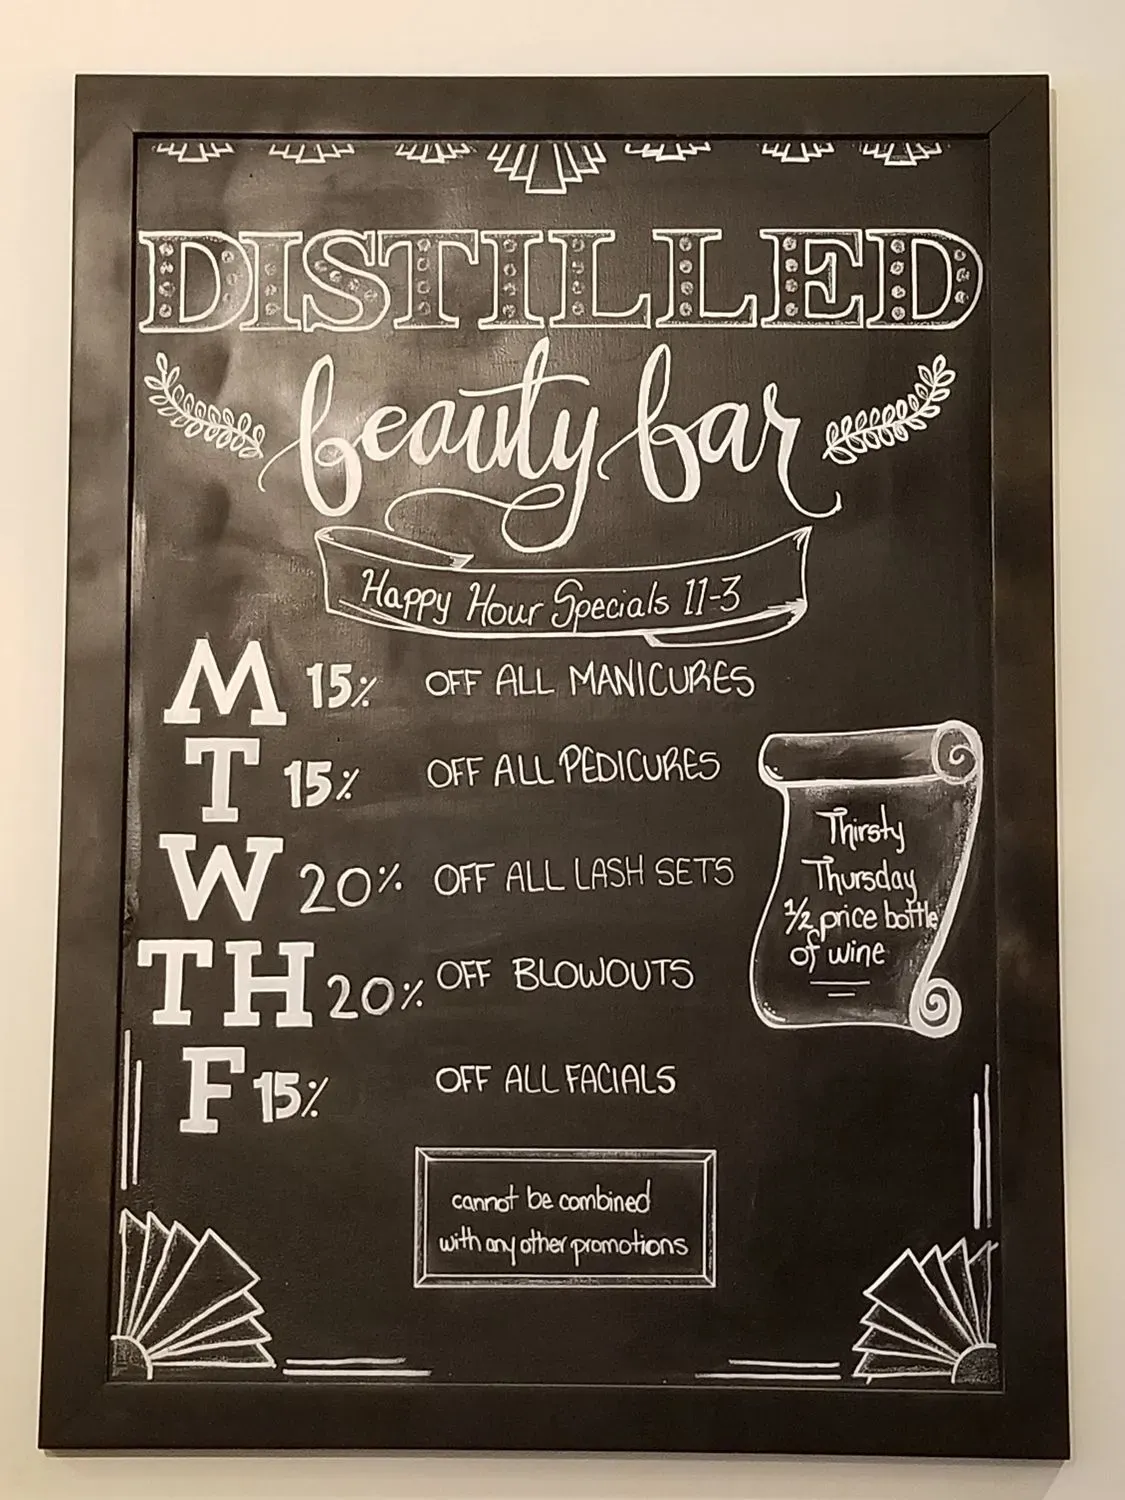 DISTILLED
beauty bar
Happy Hour Specials 11-3
M 15% OFF ALL MANICURES
T 15% OFF ALL PEDICURES
W 20% OFF ALL LASH SETS
TH 20% OFF BLOWOUTS
F 15% OFF ALL FACIALS
Thirsty
Thursday
1/2 price bottle
of wine
cannot be combined
with any other promotions